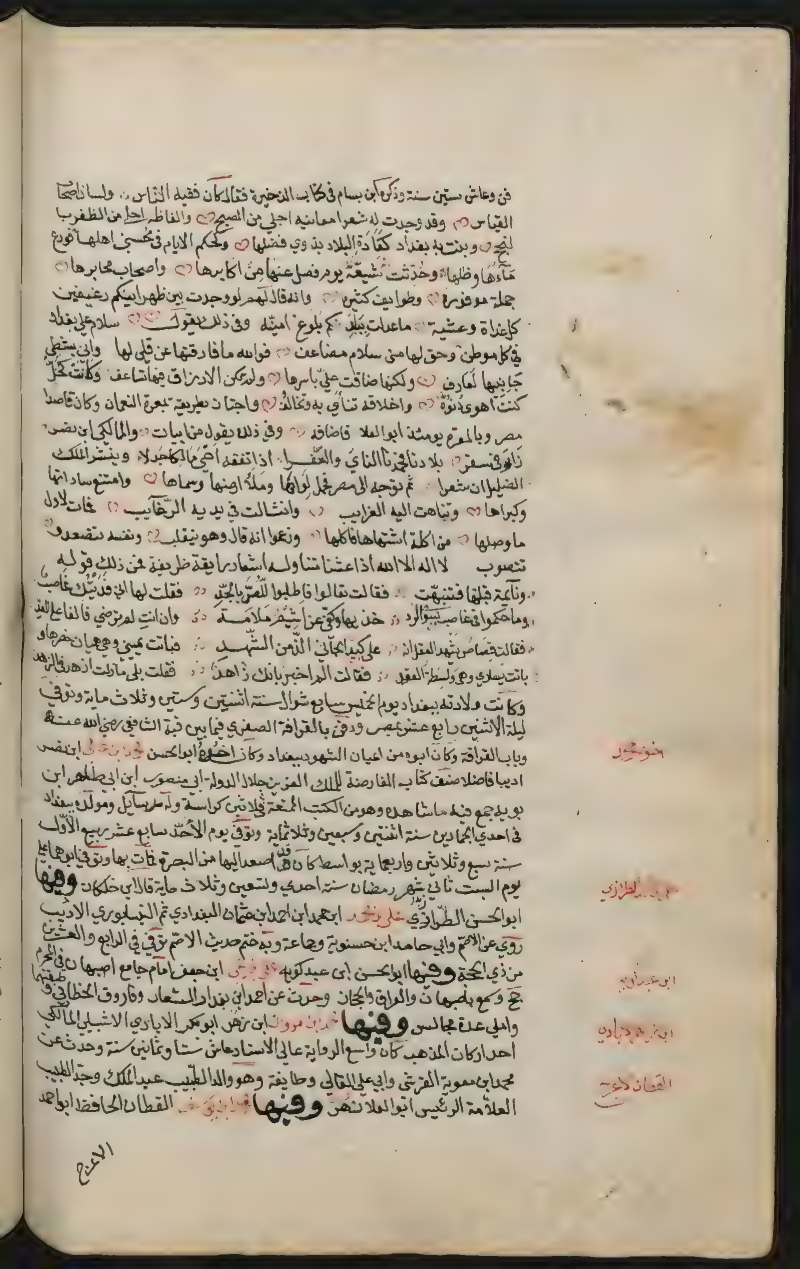 فن وعاش ستين سنة وذكره ابن بسام في كتاب الذخيرة فقال كان فقيه الناس ولسان اصحاب
القياس وقد وجدت له شعرا معانيه اجلي من الصبح والفاظه احلي من الظفر ب
لنجح ونبت به بغداد كعادة البلاد بذوي فضلها وكحكم الايام في محسني اهلها فودع
ماءها وظلها وحدثت شيعه يوم فصل عنها من اكابرها واصحاب محابرها
جملة موفورة وطوايف كثيرة وانه قال لهم لو وجدت بين ظهرانيكم رغيفين
كل غداة وعشية ما عدلت ببلدكم بلوغ امنية وفي ذلك يقول سلام علي بغداد
في كل موطن وحق لها مني سلام مضاعف فوالله ما فارقتها عن قلي لها واني بشطي
جانبيها لعارف ولكنها ضاقت علي باسرها ولم تكن الارزاق فيها تساعف وكانت كخل
كنت اهوي دنوه واخلاقه تنأي به وتخالف واجتاز بطريقه بمعرة النعمان وكان قاصدا
مصر وبالمعرة يومئذ ابو العلا فاضافه وفي ذلك يقول من ابيات والمالكي ابن نصر
زار في سفر بلادنا فحمدنا الناي والسفرا اذا تفقه احيي مالكا جدلا وينشر الملك
الضليل ان شعرا ثم توجه الي مصر فحمل لواها وملأ ارضها وسماها وامتتع ساداتها
وكبراها وتناهت اليه الغرايب وانثالت في يديه الرغايب فمات لاول
ما وصلها من اكلة اشتهاها فاكلها وزعموا انه قال وهو يتقلب ونفسه تتصعد و
تتصوب لا اله الا الله اذا عشنا متنا وله اشعار رايقة ظريفة فمن ذلك قوله
ونايمة قبلتها فتنبهت فقالت تعالوا فاطلبوا اللص بالحد فقلت لها اني فديتك غاصب
وما حكموا في غاصب بسوي الرد خذيها وكفي عن اثيم ظلامة وان انت لم ترضي فالفا علي العد
فقالت قصاص يشهد العقل انه علي كبد الجاني الذ من الشهد فباتت يميني وهي هميان خصرها و
باتت يساري وهي واسطة العقد فقالت الم اخبر بانك زاهد فقلت بلي ما زلت ازهد في الزهد
وكانت ولادته ببغداد يوم الخميس سابع شوال سنة اثنتين وستين وثلاث ماية وتوفي
ليلة الاثنين رابع عشر بمصر ودفن بالقرافة الصغري فيما بين قبة الشافعي رضي الله عنه
وباب القرافة وكان ابوه من اعيان الشهود ببغداد وكان اخوه ابو الحسن محمد بن علي ابن نصر
اديبا فاضلا صنف كتاب المفاوضة للملك العزيز جلال الدولة ابي منصور ابن ابي طاهر ابن
بويه جمع فيه ما شاهده وهو من الكتب الممتعة في ثلاثين كراسة وله رسايل ومولده ببغداد
في احدي الجمادين سنة اثنتين وسبعين وثلاثماية وتوفي يوم الاحد سابع عشر ربيع الاول
سنة سبع وثلاثين واربعماية بواسط كان قد اصعد اليها من البصرة فمات بها وتوفي ابوهما علي
يوم السبت ثاني شهر رمضان سنة احدي وتسعين وثلاث ماية قاله ابن خلكان وفيها
ابو الحسن الطرازي علي بن محمد ابن محمد ابن احمد ابن عثمان البغدادي ثم النيسابوري الاديب
روي عن الاصم وابي حامد ابن حسنوية وجماعة وبه ختم حديث الاصم توفي في الرابع والعشرين
من ذي الحجة وفيها ابو الحسن ابن عبدكويه علي ابن جعفر امام جامع اصبهان في المحرم
حج وسمع باصبهان والعراق والحجاز وحدث عن احمد ابن بندار الشعار وفاروق الخطابي وطبقتهما
واملي عدة مجالس وفيها محمد بن مروان ابن زهر ابو بكر الايادي الاشبيلي المالكي
احد اركان المذهب كان واسع الرواية عالي الاسناد عاش ستا وثمانين سنة وحدث عن
محمد ابن معوية القرشي وابي علي القالي وطايفة وهو والد الطبيب عبد الملك وجد الطبيب
العلامة الرئيس ابو العلا زهر وفيها محمد ابن يوسف القطان الحافظ ابو احمد
الاعرج
الطرازي
ابن عبدكويه
القطان الاعرج